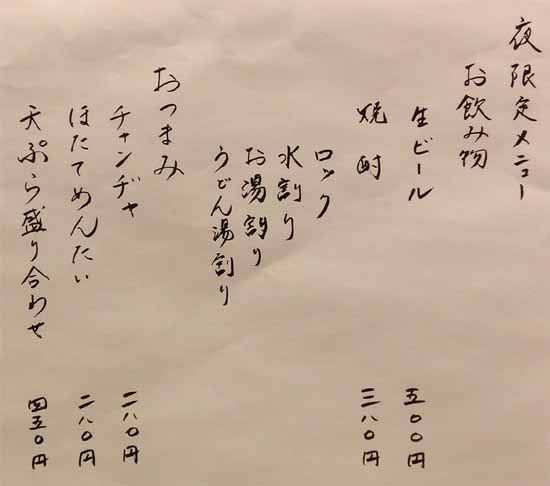 夜限定メニュー
お飲み物
生ビール 五〇〇円
焼酎 三八〇円
ロック
水割り
お湯割り
うどん湯割り
おつまみ
チャンヂャ 二八〇円
ほたてめんたい 二八〇円
天ぷら盛り合わせ 四五〇円